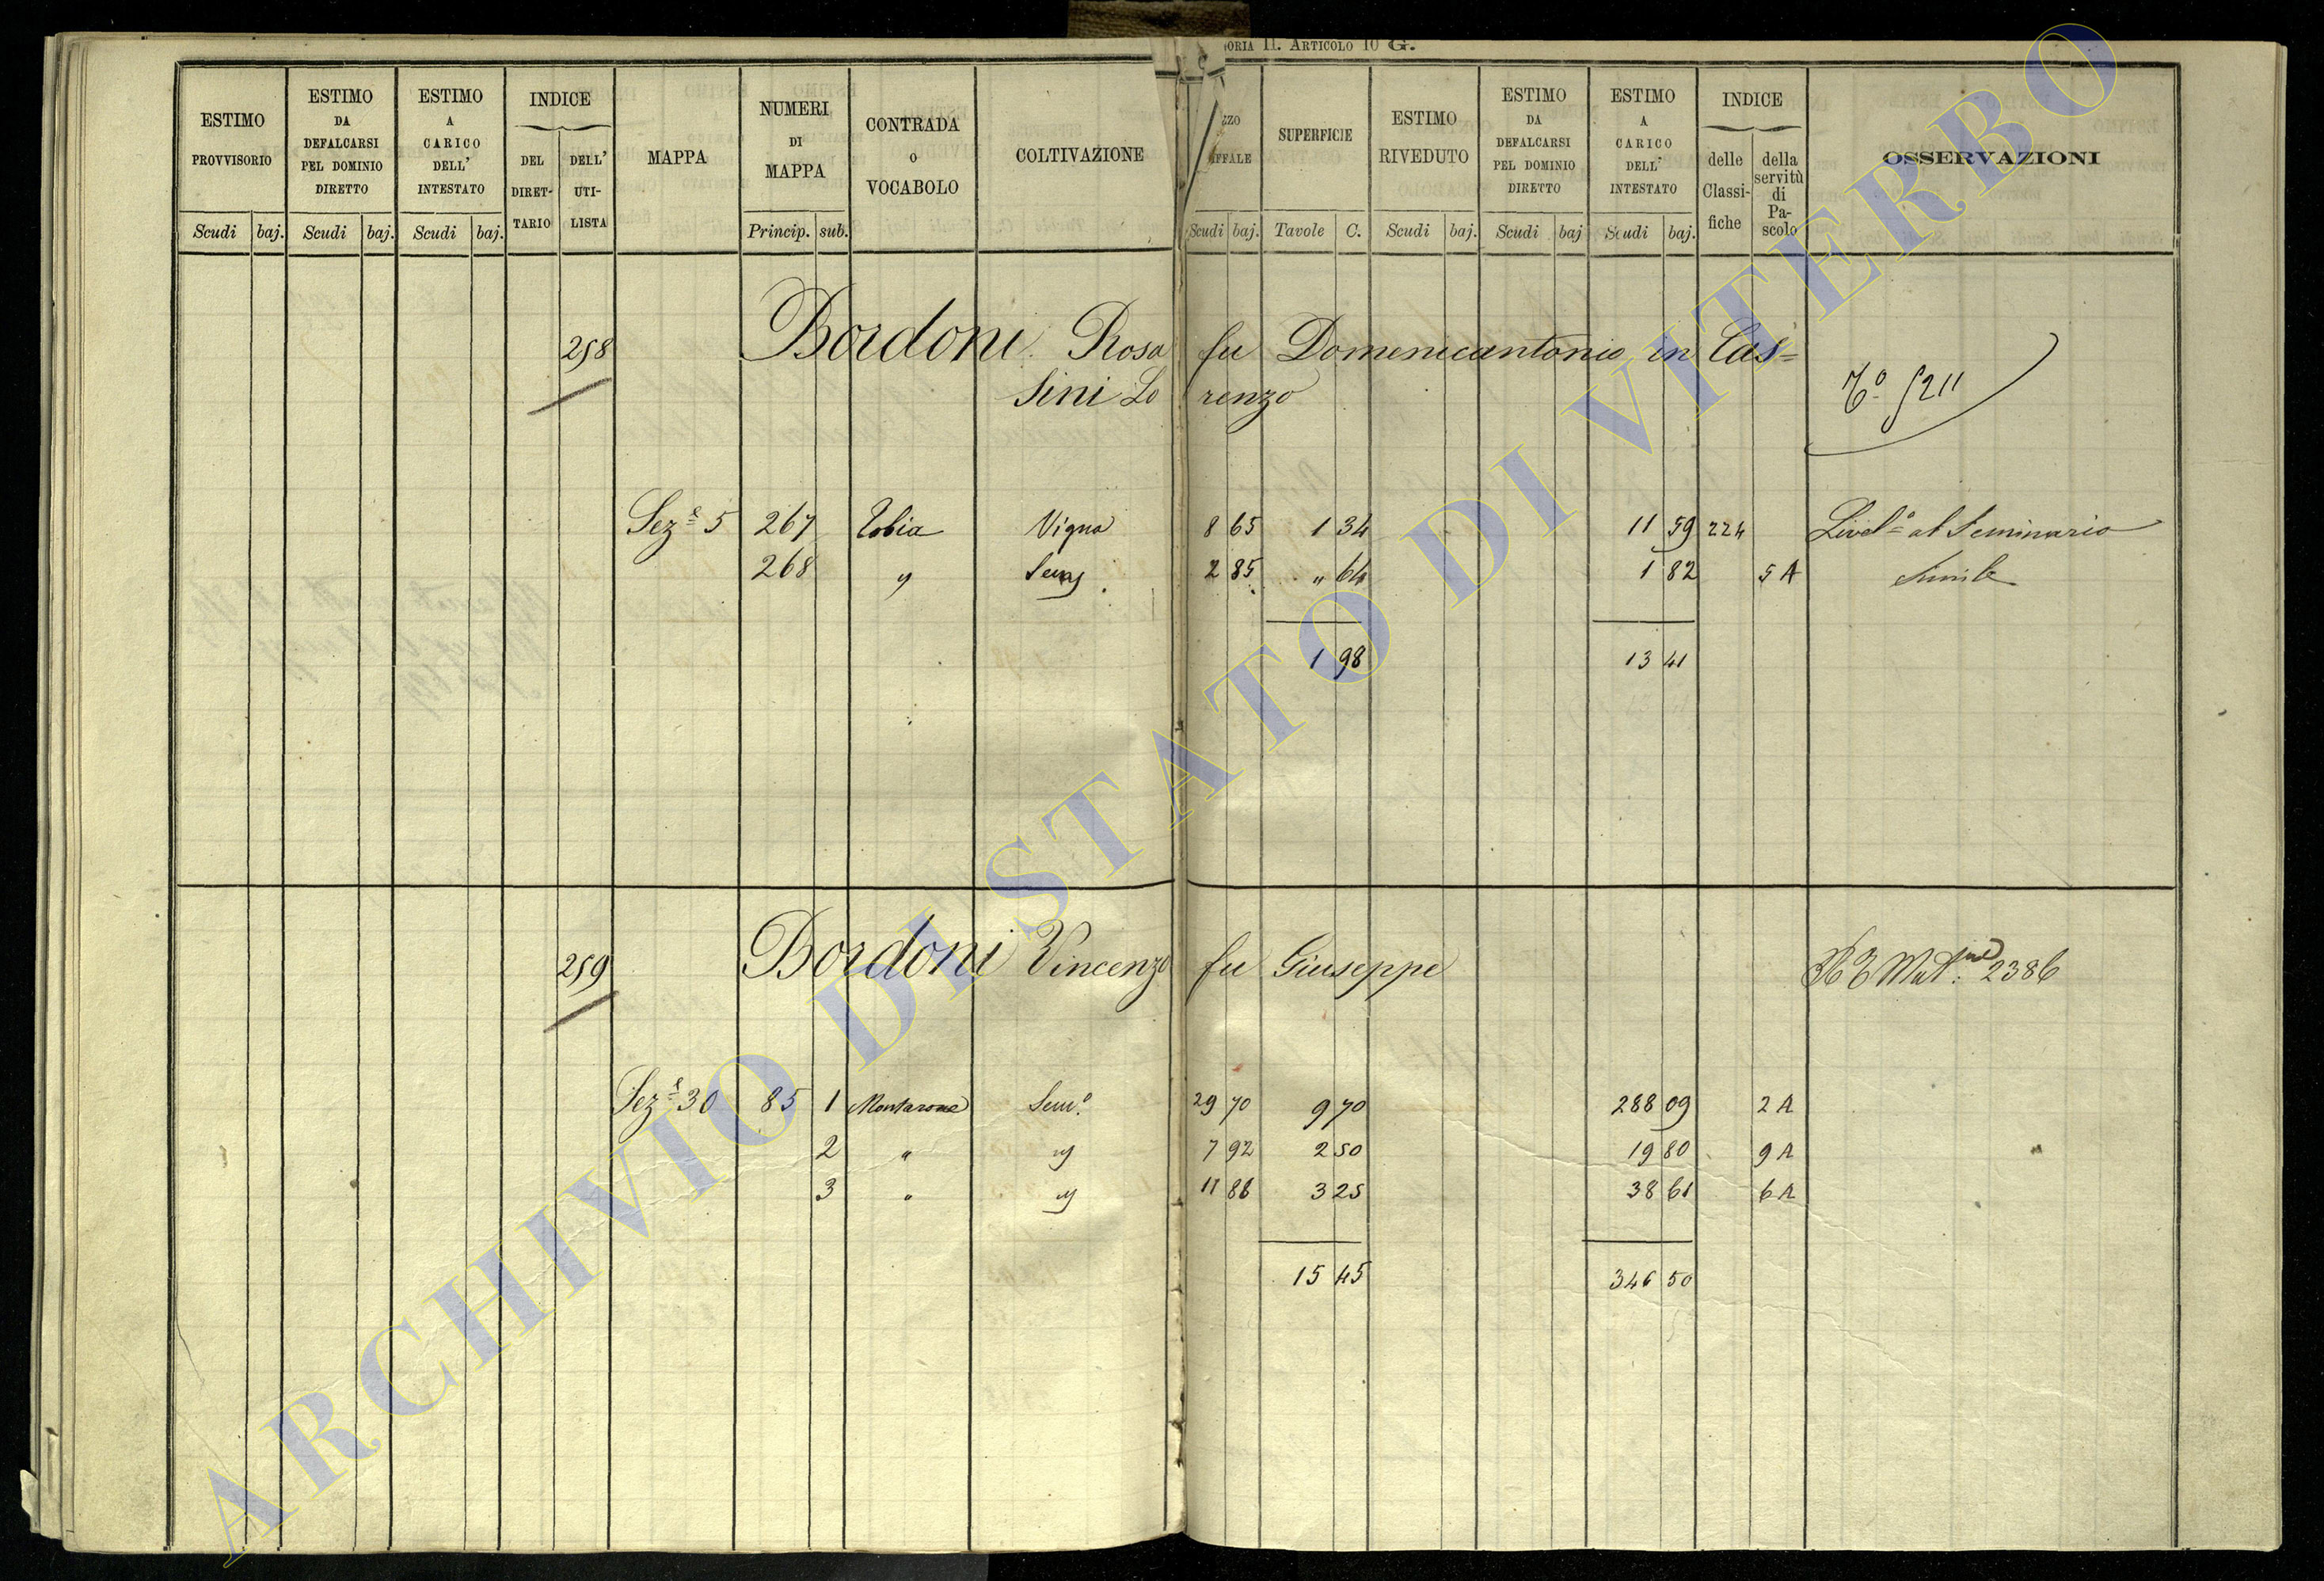 ORIA II. ARTICOLO 10 G.
ESTIMO PROVVISORIO
Scudi baj.
ESTIMO DA DEFALCARSI PEL DOMINIO DIRETTO
Scudi baj.
ESTIMO A CARICO DELL' INTESTATO
Scudi baj.
INDICE
DEL DIRET- TARIO
DELL' UTI- LISTA
MAPPA
NUMERI DI MAPPA
Princip. sub.
CONTRADA O VOCABOLO
COLTIVAZIONE
ZZO IFFALE
Scudi baj.
SUPERFICIE
Tavole C.
ESTIMO RIVEDUTO
Scudi baj.
ESTIMO DA DEFALCARSI PEL DOMINIO DIRETTO
Scudi baj
ESTIMO A CARICO DELL' INTESTATO
Scudi baj.
INDICE
delle Classi- fiche
della servitù di Pa- scolo
OSSERVAZIONI
258 Bordoni Rosa fu Domenicantonio in Cas=
sini Lorenzo
To. 5211
Seze 5 267 Tobia Vigna 8 65 1 34 11 59 224 Livelo al Seminario
268 " Semo 2 85 " 64 1 82 5 A Simile
1 98 13 41
259 Bordoni Vincenzo fu Giuseppe 2386
Seze 30 85 1 Montarone Semo 29 70 9 70 288 09 2 A
2 " " 7 92 2 50 19 80 9 A
3 " " 11 88 3 25 38 61 6 A
15 45 346 50
ARCHIVIO DI STATO DI VITERBO